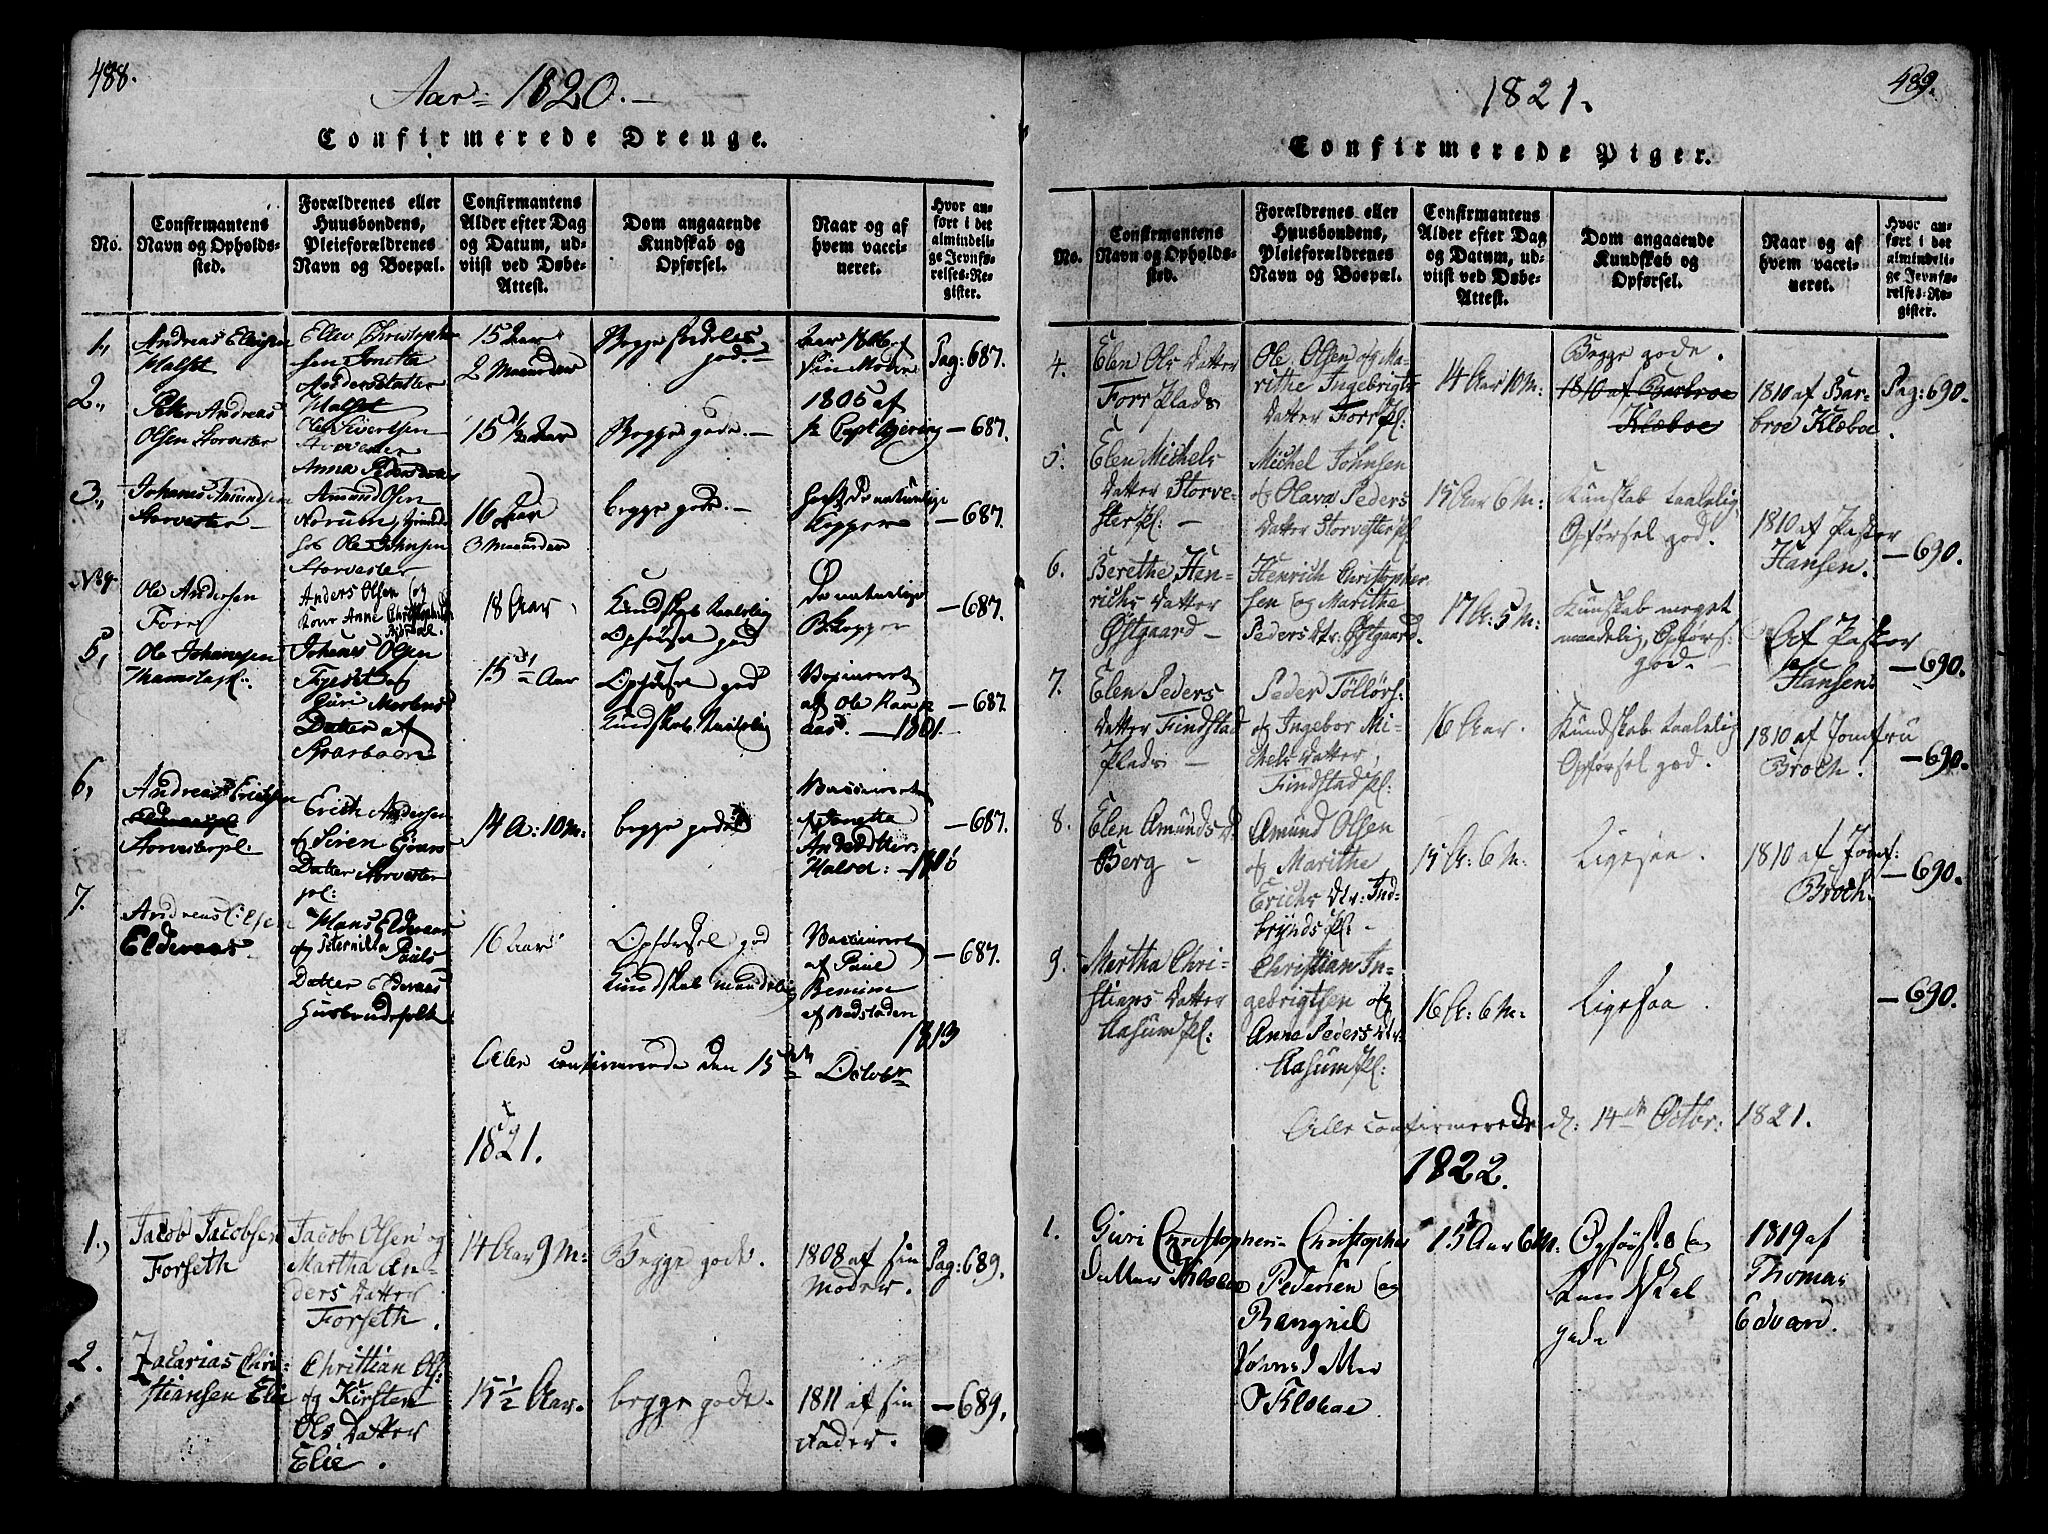 488.
Aar 1820.
Confirmerede Drenge.
No.
Confirmantens
Navn og Opholds-
sted.
Forældrenes eller
Huusbondens,
Pleieforældrenes
Navn og Boepæl.
Confirmantens
Alder efter Dag
og Datum, ud-
viist ved Døbe-
Attest.
Dom angaaende
Kundskab og
Opførsel.
Naar og af
hvem vacci-
neret.
Hvor an-
ført i det
almindeli-
ge Jevnfø-
relses-Re-
gister.
1.,
Andreas Ellevsen
Halset
Ellev Christopher
sen Jonetta
Andersdatter
Halset
15 Aar
2 Maaneder
Begge
god.
Aar 1806 af
Sin Moder
Pag: 687.
2.,
Peter Andreas
Olsen Storvester
Ole Sivertsen
Storvester
Anna
15 1/2 Aar
Begge gode.
1805 af
Capt
- 687.
3.,
Johanes Amundsen
Storvester
Amund Olsen
hos Ole Johnsen
Storvester
16 Aar
3 Maaneder
begge gode.
De naturlige
Kopper
- 687.
No 4.
Ole Andersen
Forr
Anders Olsen og
Kone Anne Christophers
18 Aar
Kundskab taalelig
Opførsel god
De naturlige
Kopper
- 687.
5,
Ole Johannesen
Johanes Olsen
Guri Mortens
Datter af
15 1/2 Aar
Opførsel god
Kundskab taalelig
Vaxineret
af Ole
aas. - 1801.
- 687
6,
Andreas Erichsen
Storvesterpl
Erich Andersen
og Siren
Datter Storvester
pl:
14 A: 10 M:
begge gode
Vaccineret
af Jonetta
Andersdatter
Halset: - 1806
- 687.
7.
Andreas
Elderaas.
Hans Elderaas
og Pernilla Pauls
Datter Elderaas
Huusbondefolk
16 Aar
Opførsel god
Kundskab maadelig
Vaccineret
af Paul
af Bodstaden
1813
- 687.
Alle confirmerede den 15de Octobr
1821.
1.,
Jacob Jacobsen
Forseth
Jacob Olsen og
Martha An-
ders Datter
Forseth.
14 Aar 9 M:
Begge gode.
1808 af sin
Moder.
Pag: 689.
2.
Zacarias Chri-
stiansen Elie
Christian Ols:
og Kirsten
Ols Datter
Elie.
15 1/2 Aar.
begge gode.
1811 af sin
Fader.
- 689.
489.
1821.
Confirmerede Piger.
No.
Confirmantens
Navn og Opholds-
sted.
Forældrenes eller
Huusbondens,
Pleieforældrenes
Navn og Boepæl.
Confirmantens
Alder efter Dag
og Datum, ud-
viist ved Døbe-
Attest.
Dom angaaende
Kundskab og
Opførsel.
Naar og af
hvem vacci-
neret.
Hvor an-
ført i det
almindeli-
ge Jevnfø-
relses-Re-
gister.
4.
Elen Ols Datter
Forr Plads
Ole Olsen og Ma-
rithe Ingebrigts
Datter Forr pl:
14 Aar 10 M:
Begge gode.
1810 af Barbroe
Klæboe
1810 af Bar-
broe Klæboe.
Pag: 690.
5.
Elen Michels
Datter Storve-
ster pl: -
Michel Johnsen
og Olava Peders
Datter Storvester pl:
15 Aar 6 M:
Kunskab taalelig,
Opførsel god.
1810 af Pastor
Hansen.
- 690.
6.
Berethe Hen-
richs Datter
Østgaard -
Henrich Christopher
sen og Marithe
Peders Dtr: Østgaard.
17 A: 5 M:
Kunskab meget
maadelig, Opførs:
god. -
Af Pastor
Hansen.
- 690.
7.
Elen Peders
Datter Findstad
Plads -
Peder Tøllørs:
og Ingebor Mi-
chels Datter,
Findstad pl:
16 Aar.
Kundskab taalelig
Opførsel god.
1810 af Jomfru
Broch.
- 690.
8.
Elen Amunds D.
Berg -
Amund Olsen
og Marithe
Erichs Dtr: Ind-
brynds pl: -
15 A: 6 M:
Ligesaa.
1810 af Jomf:
Broch.
- 690.
9.
Martha Chri-
stians Datter
Aasum pl:
Christian In-
gebrigtsen og
Anne Peders Dtr:
Aasum pl:
16 A: 6 M:
Ligesaa.
- 690.
Alle confirmerede d: 14de Octbr: 1821.
1822.
1.
Guri Christophers
datter Kloboe
Christopher
Pedersen og
Rangnil
datter
Kloboe
15 Aar 6 M:
Opførsel og
Kundskab
gode
1819 af
Thomas
Edvard.